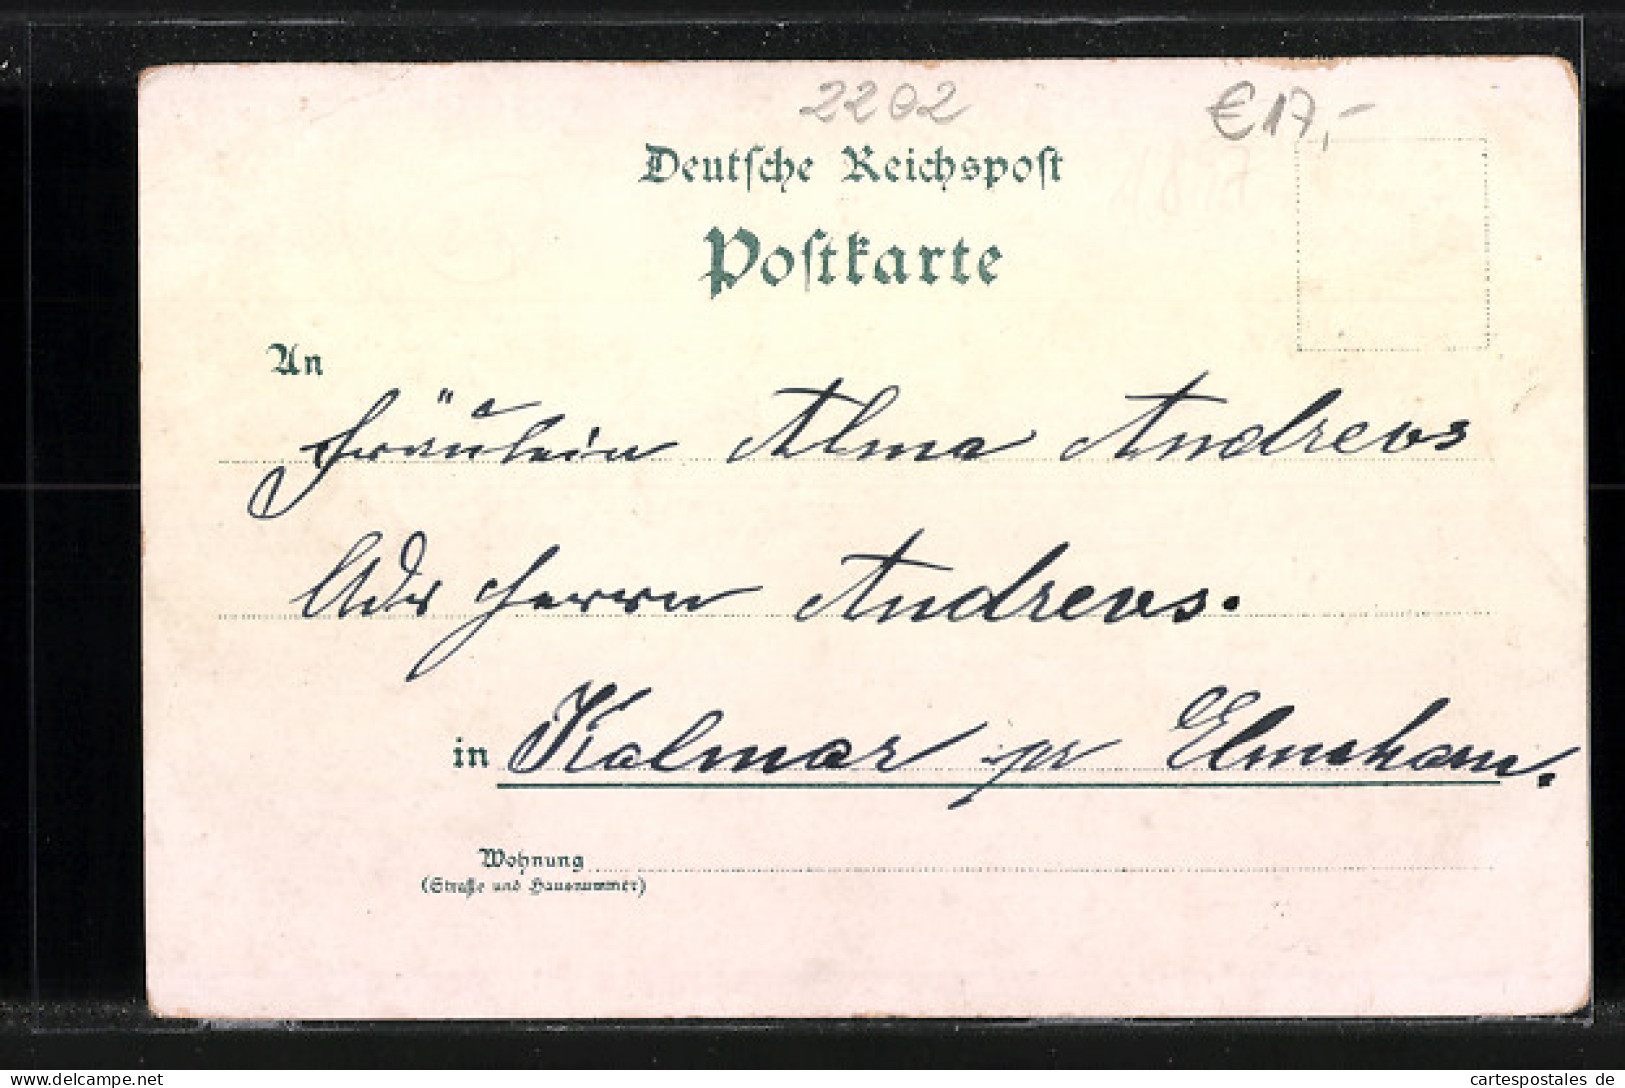 2202
€17,-
Deutsche Reichspost
Postkarte
An
Fräulein Alma Andrews
Adr Herrn Andrews.
in Kalmar pr Elmshorn.
Wohnung
(Straße und Hausnummer)
cartespostales de